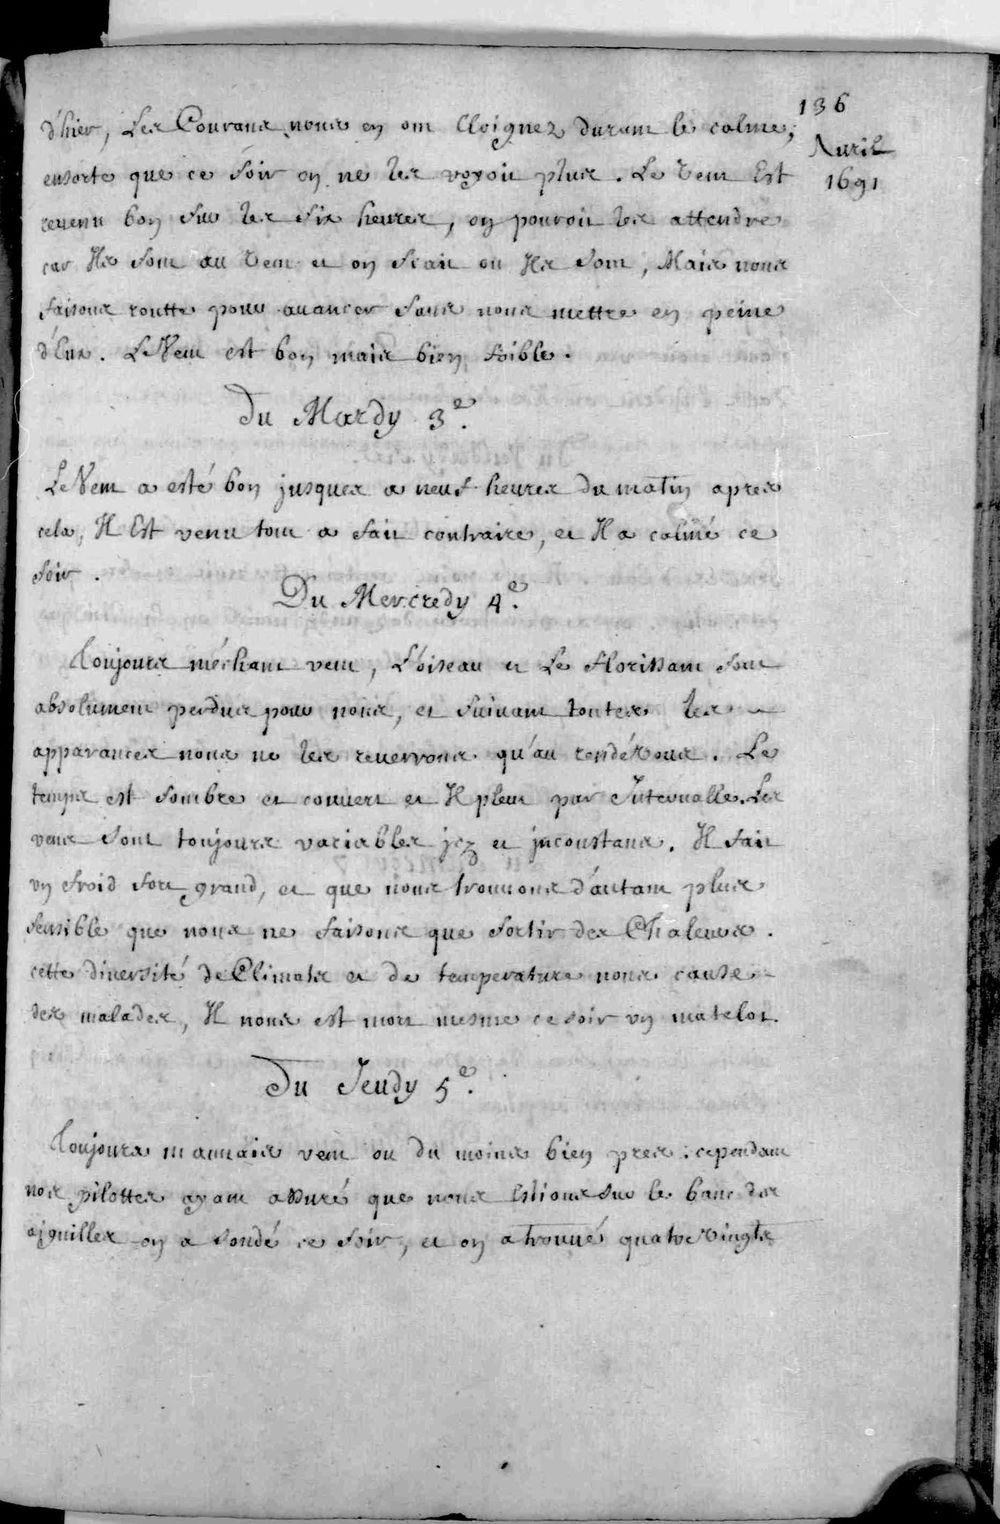 136
Auril
1691
d'hier, Les Courans nous en ont Eloignez durant le calme,
ensorte que ce soir on ne les voyoit plus. Le vent Est
reuenu bon sur les six heures, on pouroit les attendre
car Ils sont au vent et on scait ou Ils sont, Mais nous
faisons routte pour auancer sans nous mettre en peine
d'Eux. Le Vent est bon mais bien foible.
Du Mardy 3e.
Le Vent a esté bon jusques a neuf heures du matin apres
cela, Il Est venu tout a fait contraire, et Il a calmé ce
soir.
Du Mercredy 4e.
Toujours méchant vent, L'oiseau et Le florissant sont
absolument perdus pour nous, et suiuant toutes les
apparances nous ne les reuerrons qu'au rendéVous. Le
temps est sombre et couuert et Il pleut par Interualle. Les
vents sont toujours variables icy et inconstans. Il fait
vn froid fort grand, et que nous trouuons d'autant plus
sensible que nous ne faisons que sortir des Chaleurs.
cette diuersité de Climats et de temperature nous cause
des malades, Il nous est mort mesme ce soir vn matelot.
Du Jeudy 5e.
Toujours mauuais vent ou du moins bien pres. cependant
nos pilottes ayant assuré que nous Estions sur le banc des
aiguilles on a sondé ce soir, et on a trouué quatre Vingts